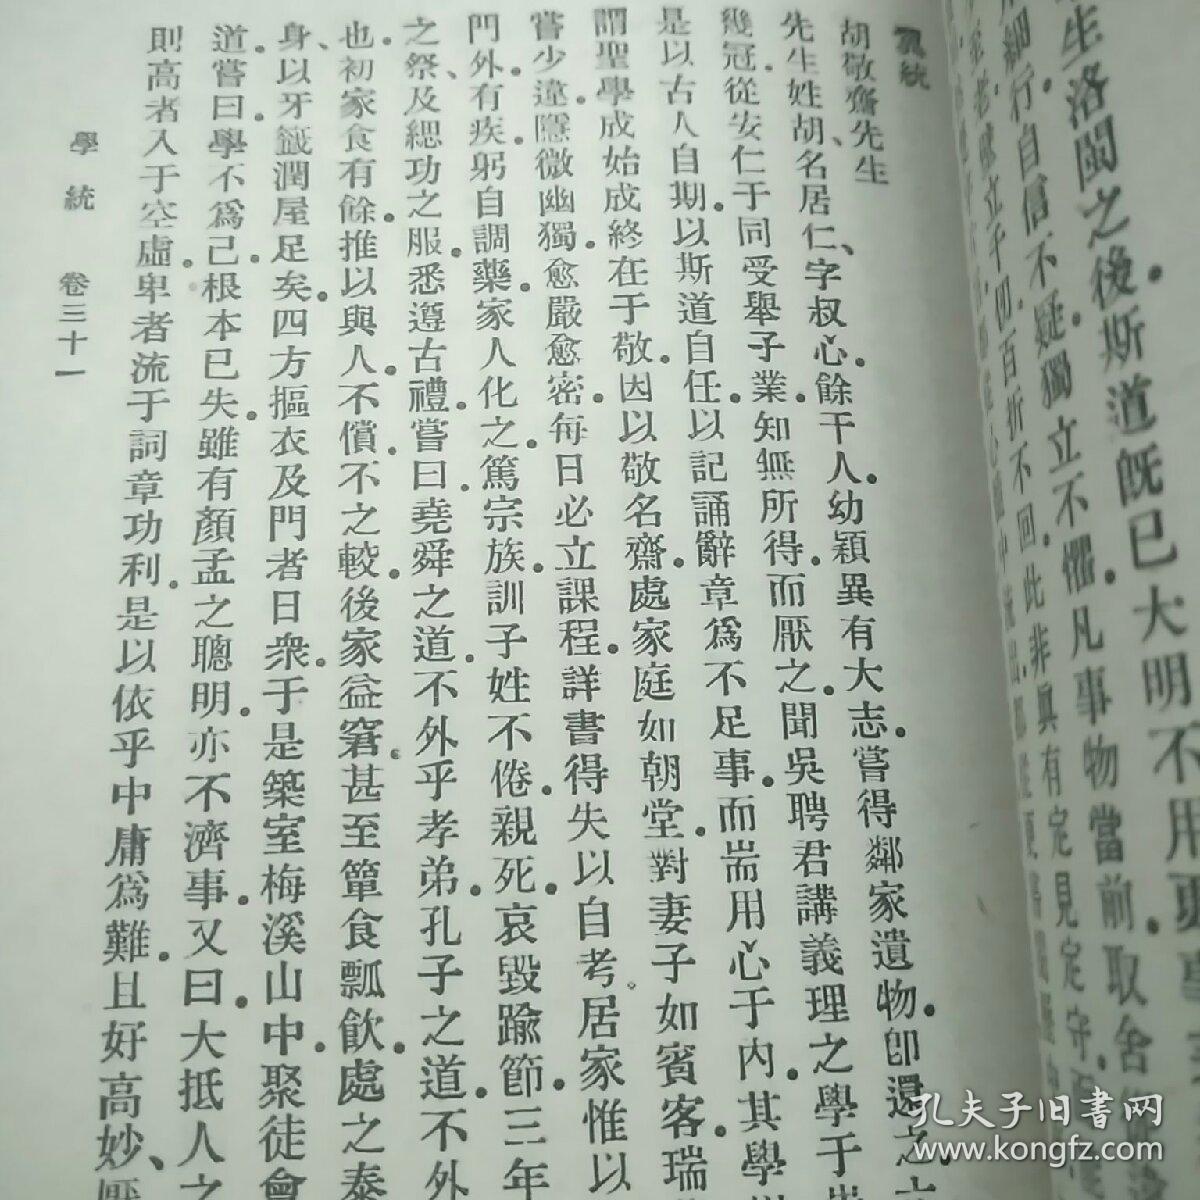 生洛閩之後斯道旣已大明不用更
自信不疑獨立不懼凡事物當前取舍
立千仞百折不回此非眞有定見定守
翼統
胡敬齋先生
先生姓胡名居仁、字叔心。餘干人。幼穎異有大志。嘗得鄰家遺物。卽還之
幾冠。從安仁于同受舉子業。知無所得。而厭之。聞吳聘君講義理之學于
是以古人自期。以斯道自任。以記誦辭章爲不足事。而耑用心于內。其學
謂聖學成始成終在于敬。因以敬名齋。處家庭如朝堂。對妻子如賓客。瑞
嘗少違。隱微幽獨。愈嚴愈密。每日必立課程。詳書得失以自考。居家惟以
門外。有疾。躬自調藥。家人化之。篤宗族。訓子姓不倦。親死。哀毀踰節。三年
之祭、及緦功之服。悉遵古禮。嘗曰。堯舜之道。不外乎孝弟。孔子之道。不外
也。初家食有餘。推以與人。不償。不之較。後家益窘。甚至簞食瓢飲。處之泰
身、以牙籤潤屋足矣。四方摳衣及門者日衆。于是築室梅溪山中。聚徒會
道。嘗曰。學不爲己。根本已失。雖有顏孟之聰明。亦不濟事。又曰。大抵人之
則高者入于空虛。卑者流于詞章功利。是以依乎中庸爲難。且好高妙、厭
學統 卷三十一
孔夫子旧書网
www.kongfz.com